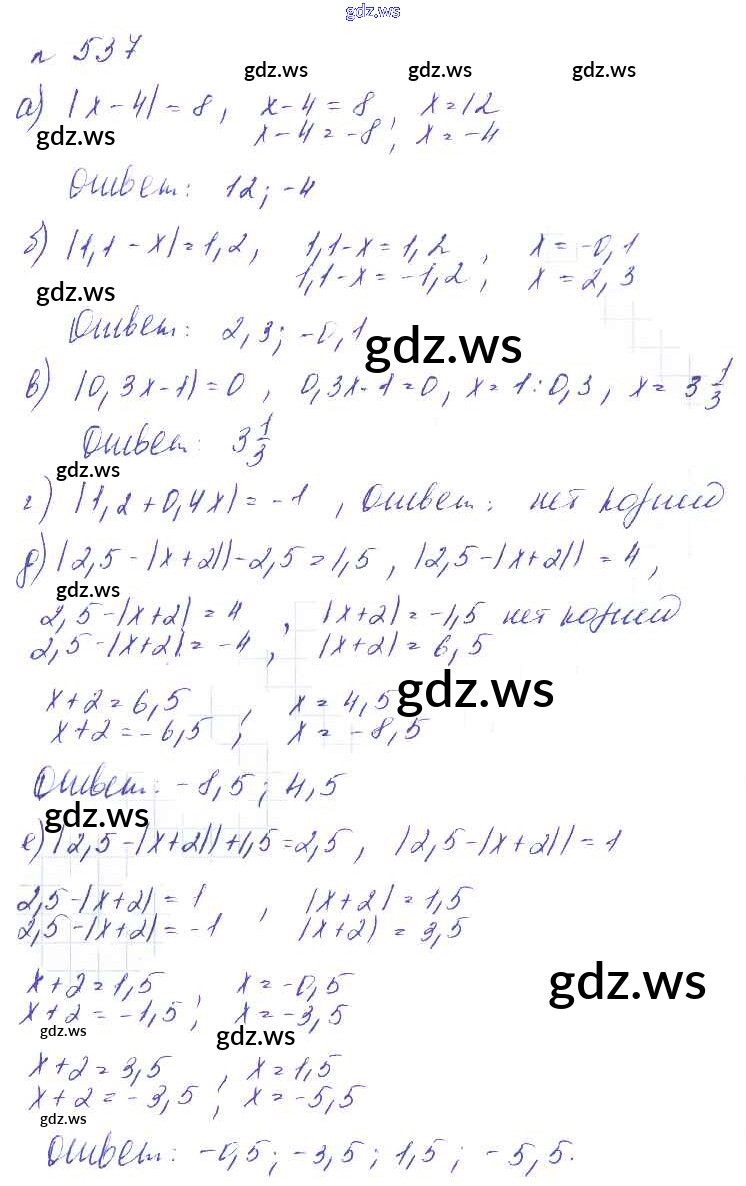 gdz.ws
n 537
gdz.ws gdz.ws gdz.ws
а) |x-4|=8, x-4=8, x=12
gdz.ws x-4=-8; x=-4
Ответ: 12; -4
б) |1,1-x|=1,2, 1,1-x=1,2, x=-0,1
gdz.ws 1,1-x=-1,2; x=2,3
Ответ: 2,3; -0,1
gdz.ws
в) |0,3x-1|=0, 0,3x-1=0, x=1:0,3, x=3 1/3
Ответ: 3 1/3
gdz.ws
г) |1,2+0,4x|=-1, Ответ: нет корней
д) |2,5-|x+2||-2,5=1,5, |2,5-|x+2||=4,
gdz.ws
2,5-|x+2|=4, |x+2|=-1,5 нет корней
2,5-|x+2|=-4, |x+2|=6,5
gdz.ws
x+2=6,5, x=4,5
x+2=-6,5; x=-8,5
Ответ: -8,5; 4,5
gdz.ws
е) |2,5-|x+2||+1,5=2,5, |2,5-|x+2||=1
2,5-|x+2|=1, |x+2|=1,5
2,5-|x+2|=-1 |x+2|=3,5
gdz.ws
x+2=1,5, x=-0,5
x+2=-1,5; x=-3,5
gdz.ws gdz.ws
x+2=3,5, x=1,5
x+2=-3,5; x=-5,5
gdz.ws
Ответ: -0,5; -3,5; 1,5; -5,5.